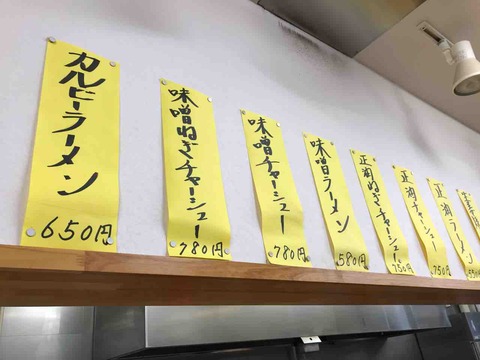 カルビラーメン
650円
味噌ねぎチャーシュー
780円
味噌チャーシュー
780円
味噌ラーメン
580円
正油ねぎチャーシュー
750円
正油チャーシュー
750円
正油ラーメン
550円